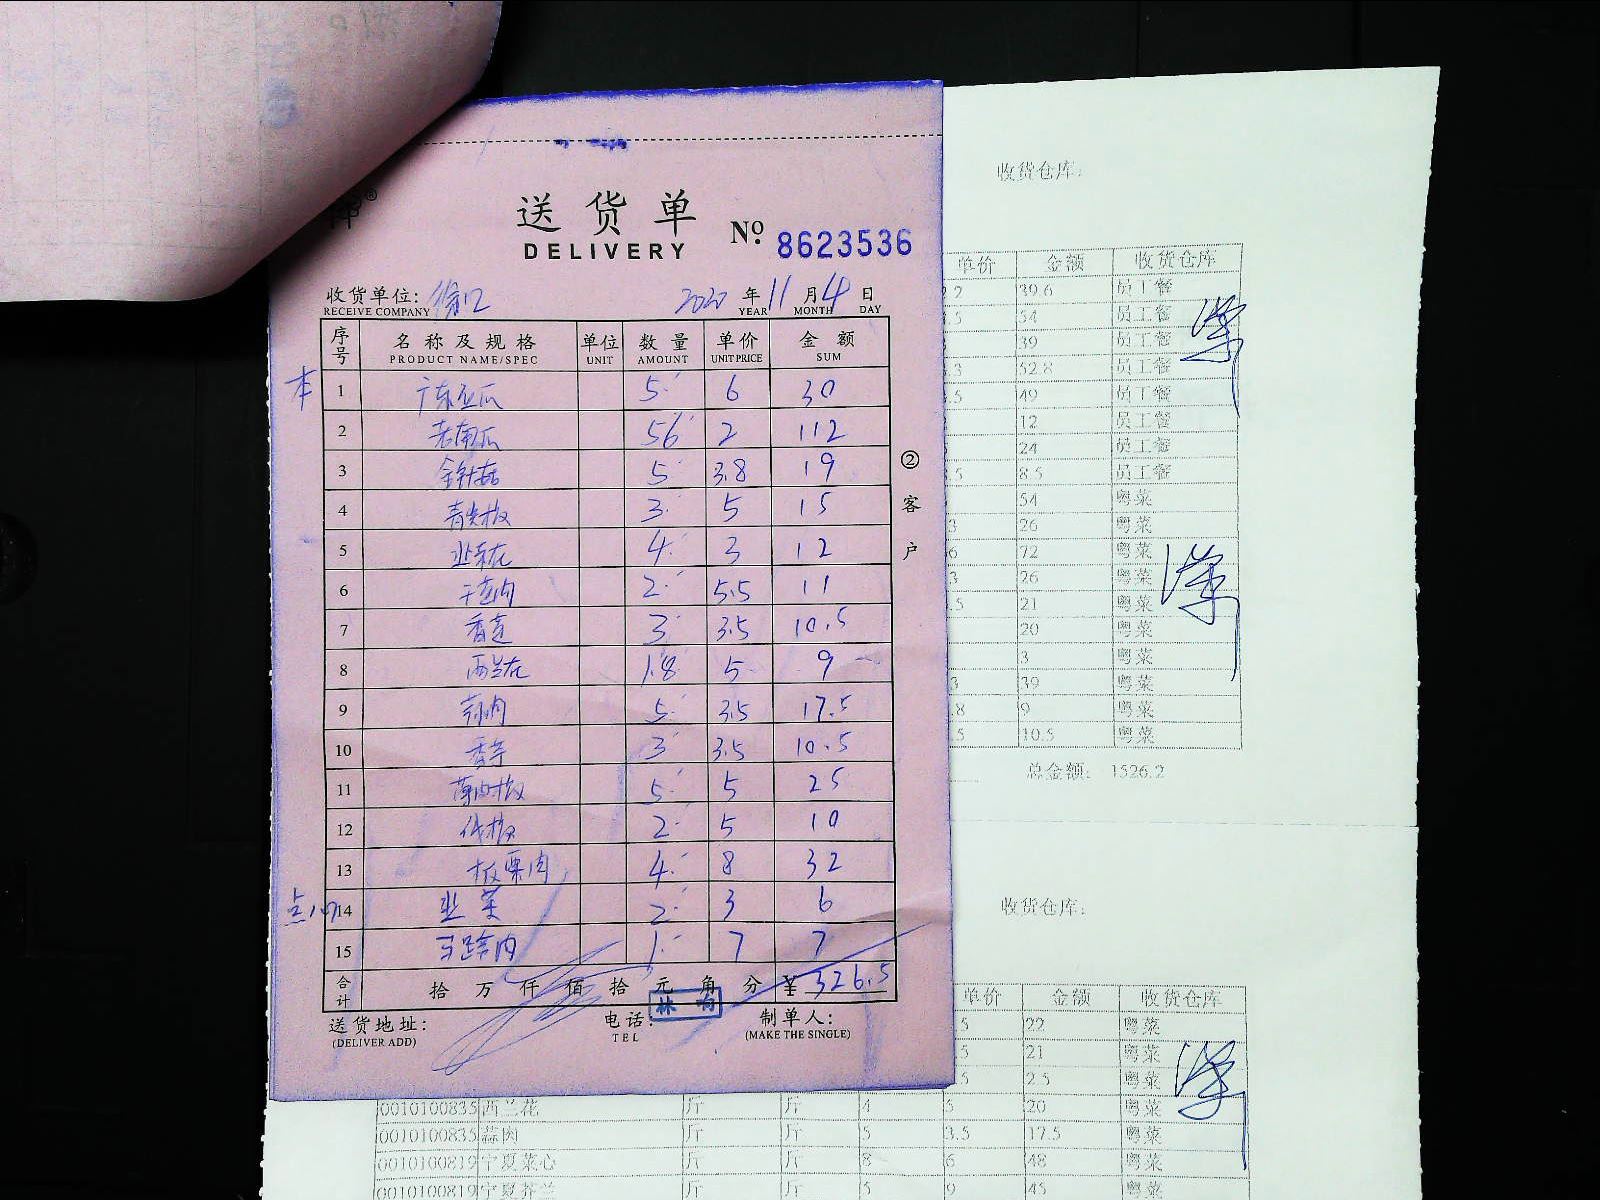 送货单
DELIVERY
No. 8623536
收货单位:
RECEIVE COMPANY
2020 年 11 月 4 日
YEAR MONTH DAY
序号 名称及规格 单位 数量 单价 金额
PRODUCT NAME/SPEC UNIT AMOUNT UNIT PRICE SUM
本
1 5 6 30
2 老南瓜 56 2 112
3 金针菇 5 3.8 19
4 青尖椒 3 5 15
5 韭菜花 4 3 12
6 2 5.5 11
7 香芹 3 3.5 10.5
8 西兰花 1.8 5 9
9 蒜肉 5 3.5 17.5
10 香芋 3 3.5 10.5
11 薄肉椒 5 5 25
12 2 5 10
13 板栗肉 4 8 32
点心
14 韭菜 2 3 6
15 马蹄肉 1 7 7
合计 拾 万 仟 佰 拾 元 角 分 ¥ 326.5
送货地址:
(DELIVER ADD)
电话:
TEL
制单人:
(MAKE THE SINGLE)
②客户
收货仓库:
单价 金额 收货仓库
39.6 员工餐
54 员工餐
39 员工餐
52.8 员工餐
49 员工餐
12 员工餐
24 员工餐
8.5 员工餐
54 粤菜
26 粤菜
72 粤菜
26 粤菜
21 粤菜
20 粤菜
3 粤菜
39 粤菜
9 粤菜
10.5 粤菜
总金额: 1526.2
收货仓库:
单价 金额 收货仓库
22 粤菜
21 粤菜
2.5 粤菜
0010100835 西兰花 斤 斤 4 5 20 粤菜
0010100835 蒜肉 斤 斤 5 3.5 17.5 粤菜
0010100819 宁夏菜心 斤 斤 8 6 48 粤菜
0010100819 宁夏芥兰 斤 斤 5 9 45 粤菜